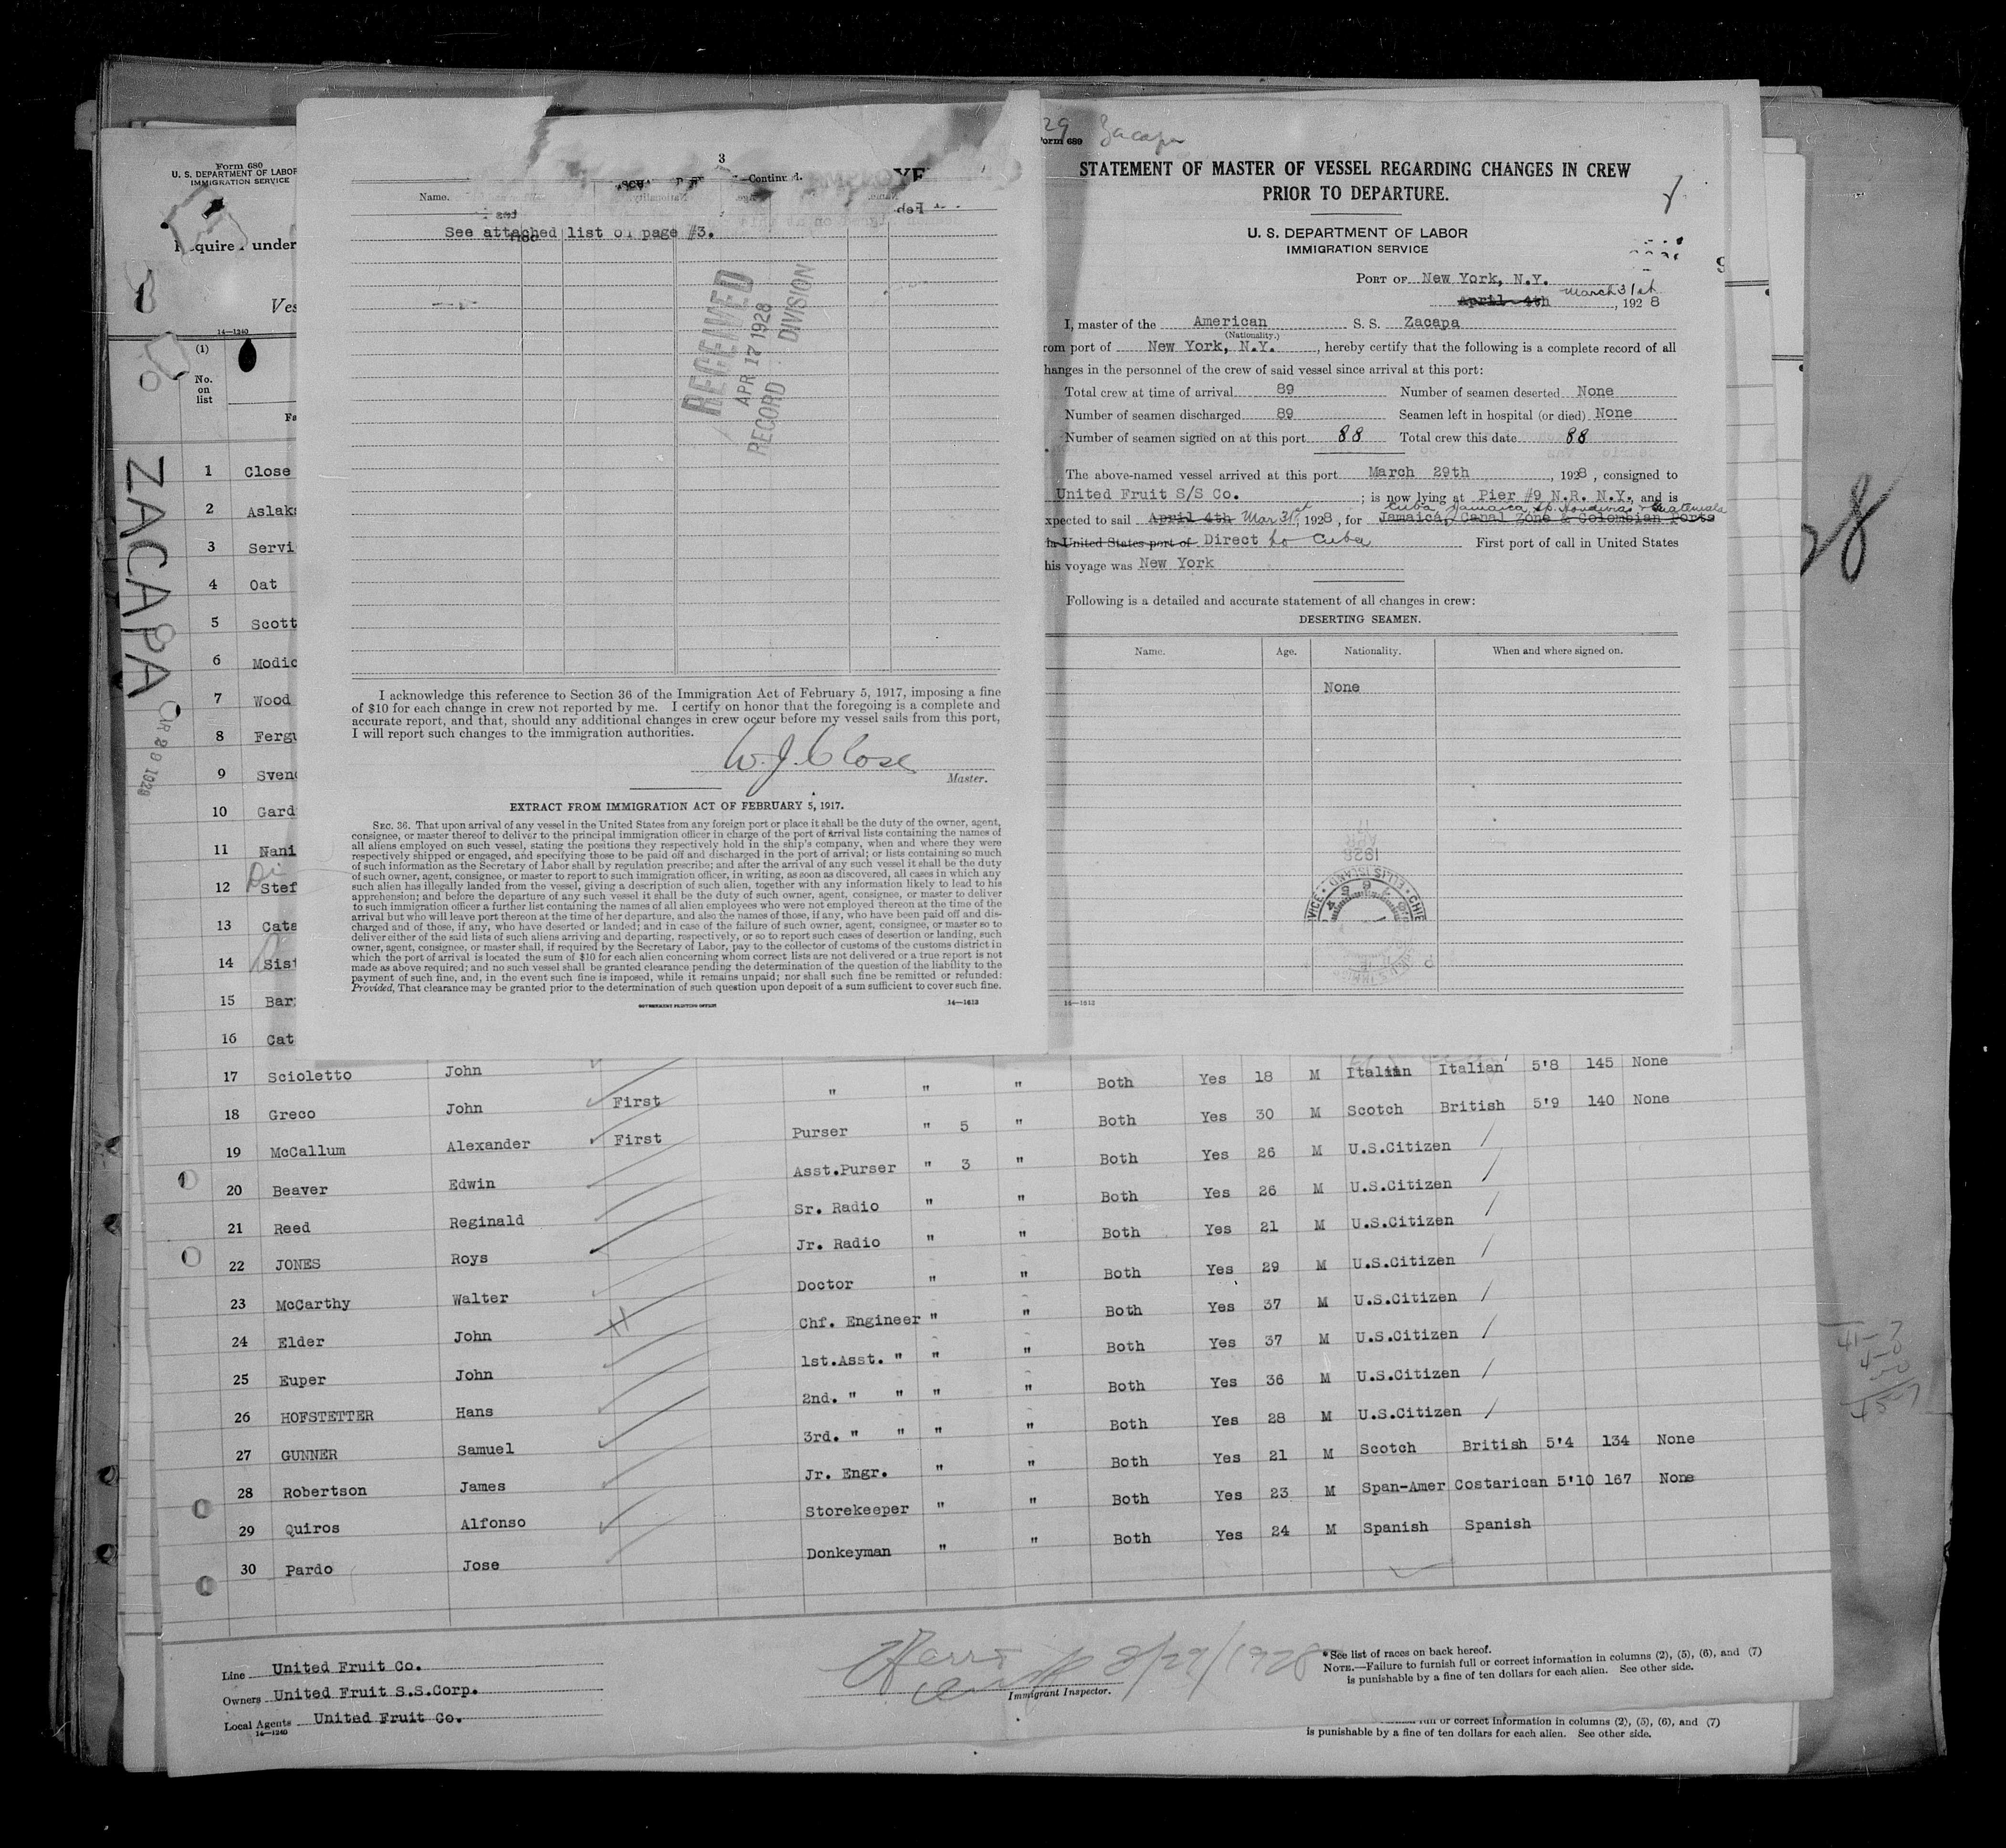 Form 680
U. S. DEPARTMENT OF LABOR
IMMIGRATION SERVICE
under
Ves
14—1240
(1)
No.
on
list
Fa
ZACAPA
1 Close
2 Aslaks
3 Servi
4 Oat
5 Scott
6 Modic
7 Wood
8 Fergu
9 Svend
10 Gard
11 Nani
12 Di Stef
13 Cata
14 Sist
15 Bar
16 Cat
3
—Continued.
Name.
See attached list on page #3.
RECEIVED
APR 17 1928
RECORD DIVISION
I acknowledge this reference to Section 36 of the Immigration Act of February 5, 1917, imposing a fine
of $10 for each change in crew not reported by me. I certify on honor that the foregoing is a complete and
accurate report, and that, should any additional changes in crew occur before my vessel sails from this port,
I will report such changes to the immigration authorities.
W. J. Close
Master.
EXTRACT FROM IMMIGRATION ACT OF FEBRUARY 5, 1917.
SEC. 36. That upon arrival of any vessel in the United States from any foreign port or place it shall be the duty of the owner, agent,
consignee, or master thereof to deliver to the principal immigration officer in charge of the port of arrival lists containing the names of
all aliens employed on such vessel, stating the positions they respectively hold in the ship's company, when and where they were
respectively shipped or engaged, and specifying those to be paid off and discharged in the port of arrival; or lists containing so much
of such information as the Secretary of Labor shall by regulation prescribe; and after the arrival of any such vessel it shall be the duty
of such owner, agent, consignee, or master to report to such immigration officer, in writing, as soon as discovered, all cases in which any
such alien has illegally landed from the vessel, giving a description of such alien, together with any information likely to lead to his
apprehension; and before the departure of any such vessel it shall be the duty of such owner, agent, consignee, or master to deliver
to such immigration officer a further list containing the names of all alien employees who were not employed thereon at the time of the
arrival but who will leave port thereon at the time of her departure, and also the names of those, if any, who have been paid off and dis-
charged and of those, if any, who have deserted or landed; and in case of the failure of such owner, agent, consignee, or master so to
deliver either of the said lists of such aliens arriving and departing, respectively, or so to report such cases of desertion or landing, such
owner, agent, consignee, or master shall, if required by the Secretary of Labor, pay to the collector of customs of the customs district in
which the port of arrival is located the sum of $10 for each alien concerning whom correct lists are not delivered or a true report is not
made as above required; and no such vessel shall be granted clearance pending the determination of the question of the liability to the
payment of such fine, and, in the event such fine is imposed, while it remains unpaid; nor shall such fine be remitted or refunded:
Provided, That clearance may be granted prior to the determination of such question upon deposit of a sum sufficient to cover such fine.
GOVERNMENT PRINTING OFFICE
14—1612
29 Zacapa
Form 689
STATEMENT OF MASTER OF VESSEL REGARDING CHANGES IN CREW
PRIOR TO DEPARTURE.
U. S. DEPARTMENT OF LABOR
IMMIGRATION SERVICE
PORT OF New York, N.Y.
April 4th March 31st, 1928
I, master of the American S. S. Zacapa
(Nationality.)
rom port of New York, N.Y., hereby certify that the following is a complete record of all
hanges in the personnel of the crew of said vessel since arrival at this port:
Total crew at time of arrival 89 Number of seamen deserted None
Number of seamen discharged 89 Seamen left in hospital (or died) None
Number of seamen signed on at this port 88 Total crew this date 88
The above-named vessel arrived at this port March 29th, 1928, consigned to
United Fruit S/S Co.; is now lying at Pier #9 N.R. N.Y., and is
Cuba, Jamaica, Sp. Honduras & Guatemala
xpected to sail April 4th Mar 31st, 1928, for Jamaica, Canal Zone & Colombian Ports
United States port of Direct to Cuba First port of call in United States
his voyage was New York
Following is a detailed and accurate statement of all changes in crew:
DESERTING SEAMEN.
Name. Age. Nationality. When and where signed on.
None
14—1612
28
17 Scioletto John " " " Both Yes 18 M Italian Italian 5'8 145 None
18 Greco John First Purser " 5 " Both Yes 30 M Scotch British 5'9 140 None
19 McCallum Alexander First Asst.Purser " 3 " Both Yes 26 M U.S.Citizen
20 Beaver Edwin Sr. Radio " " Both Yes 26 M U.S.Citizen
21 Reed Reginald Jr. Radio " " Both Yes 21 M U.S.Citizen
22 JONES Roys Doctor " " Both Yes 29 M U.S.Citizen
23 McCarthy Walter Chf. Engineer " " Both Yes 37 M U.S.Citizen
24 Elder John 1st.Asst. " " " Both Yes 37 M U.S.Citizen
25 Euper John 2nd. " " " " Both Yes 36 M U.S.Citizen
26 HOFSTETTER Hans 3rd. " " " " Both Yes 28 M U.S.Citizen
27 GUNNER Samuel Jr. Engr. " " Both Yes 21 M Scotch British 5'4 134 None
28 Robertson James Storekeeper " " Both Yes 23 M Span-Amer Costarican 5'10 167 None
29 Quiros Alfonso Donkeyman " " Both Yes 24 M Spanish Spanish
30 Pardo Jose
Line United Fruit Co.
Owners United Fruit S.S.Corp.
Local Agents United Fruit Co.
14—1240
3/29/1928
Immigrant Inspector.
*See list of races on back hereof.
NOTE.—Failure to furnish full or correct information in columns (2), (5), (6), and (7)
is punishable by a fine of ten dollars for each alien. See other side.
or correct information in columns (2), (5), (6), and (7)
is punishable by a fine of ten dollars for each alien. See other side.